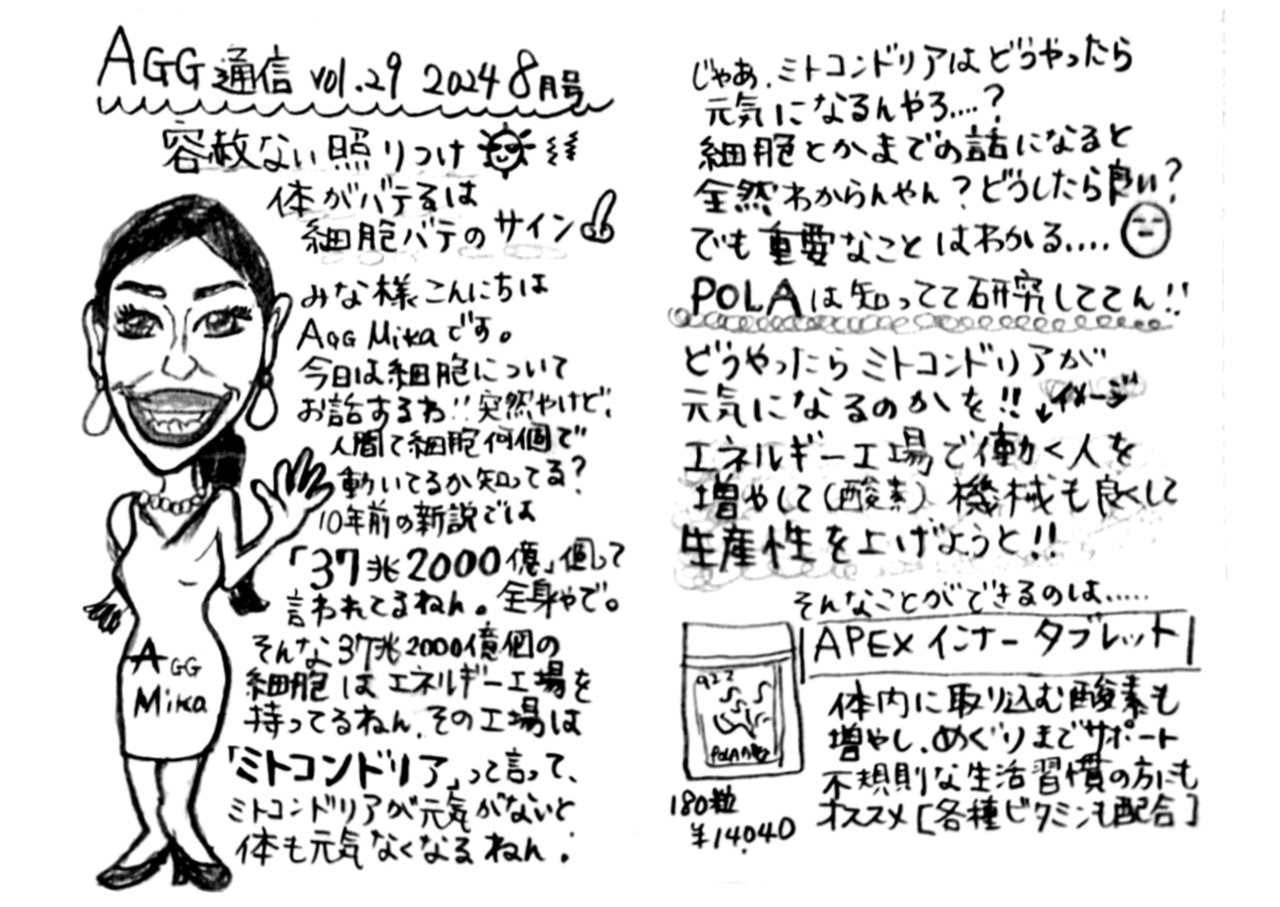 AGG通信 vol.29 2024 8月号
容赦ない照りつけ
体がバテるは
細胞バテのサイン
みな様こんにちは
AGG Mikaです。
今日は細胞について
お話するわ!!突然やけど、
人間て細胞何個で
動いてるか知ってる?
10年前の新説では
「37兆2000億」個って
言われてるねん。全身やで。
そんな37兆2000億個の
細胞はエネルギー工場を
持ってるねん。その工場は
「ミトコンドリア」って言って、
ミトコンドリアが元気がないと
体も元気なくなるねん。
AGG
Mika
じゃあ、ミトコンドリアはどうやったら
元気になるんやろ....?
細胞とかまでの話になると
全然わからんやん?どうしたら良い?
でも重要なことはわかる....
POLAは知ってて研究しててん!!
どうやったらミトコンドリアが
元気になるのかを!!
イメージ
エネルギー工場で働く人を
増やして(酸素)機械も良くして
生産性を上げようと!!
そんなことができるのは.....
APEXインナータブレット
体内に取り込む酸素も
増やし、めぐりまでサポート
不規則な生活習慣の方にも
オススメ[各種ビタミンも配合]
180粒
¥14,040